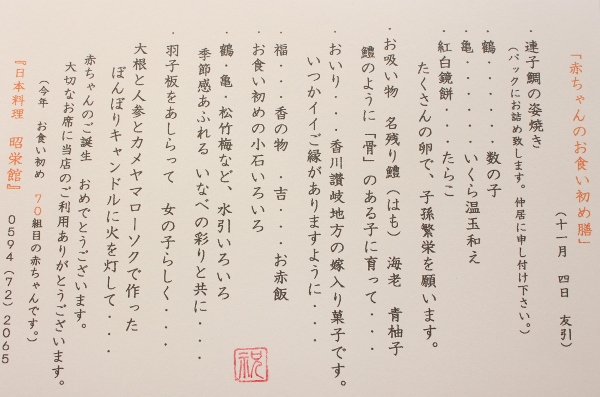 「赤ちゃんのお食い初め膳」
(十一月 四日 友引)
・連子鯛の姿焼き
(パックにお詰め致します。仲居に申し付け下さい。)
・鶴・・・・・・数の子
・亀・・・・・・いくら温玉和え
・紅白鏡餅・・・たらこ
たくさんの卵で、子孫繁栄を願います。
・お吸い物 名残り鱧(はも) 海老 青柚子
鱧のように「骨」のある子に育って・・・
・おいり・・・・香川讃岐地方の嫁入り菓子です。
いつかイイご縁がありますように・・・
・福・・・香の物 ・吉・・・お赤飯
・お食い初めの小石いろいろ
・鶴・亀・松竹梅など、水引いろいろ
季節感あふれる いなべの彩りと共に・・・
・羽子板をあしらって 女の子らしく・・・
大根と人参とカメヤマローソクで作った
ぼんぼりキャンドルに火を灯して・・・
赤ちゃんのご誕生 おめでとうございます。
大切なお席に当店のご利用ありがとうございます。
(今年 お食い初め 70組目の赤ちゃんです。)
『日本料理 昭栄館』 0594(72)2065
祝